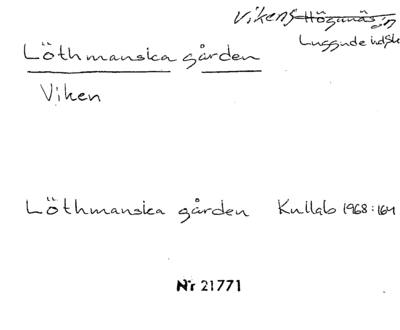 Vikens Höganäs sn
Luggude hdsk
Löthmanska gården
Viken
Löthmanska gården Kullab 1968:164
Nr 21771